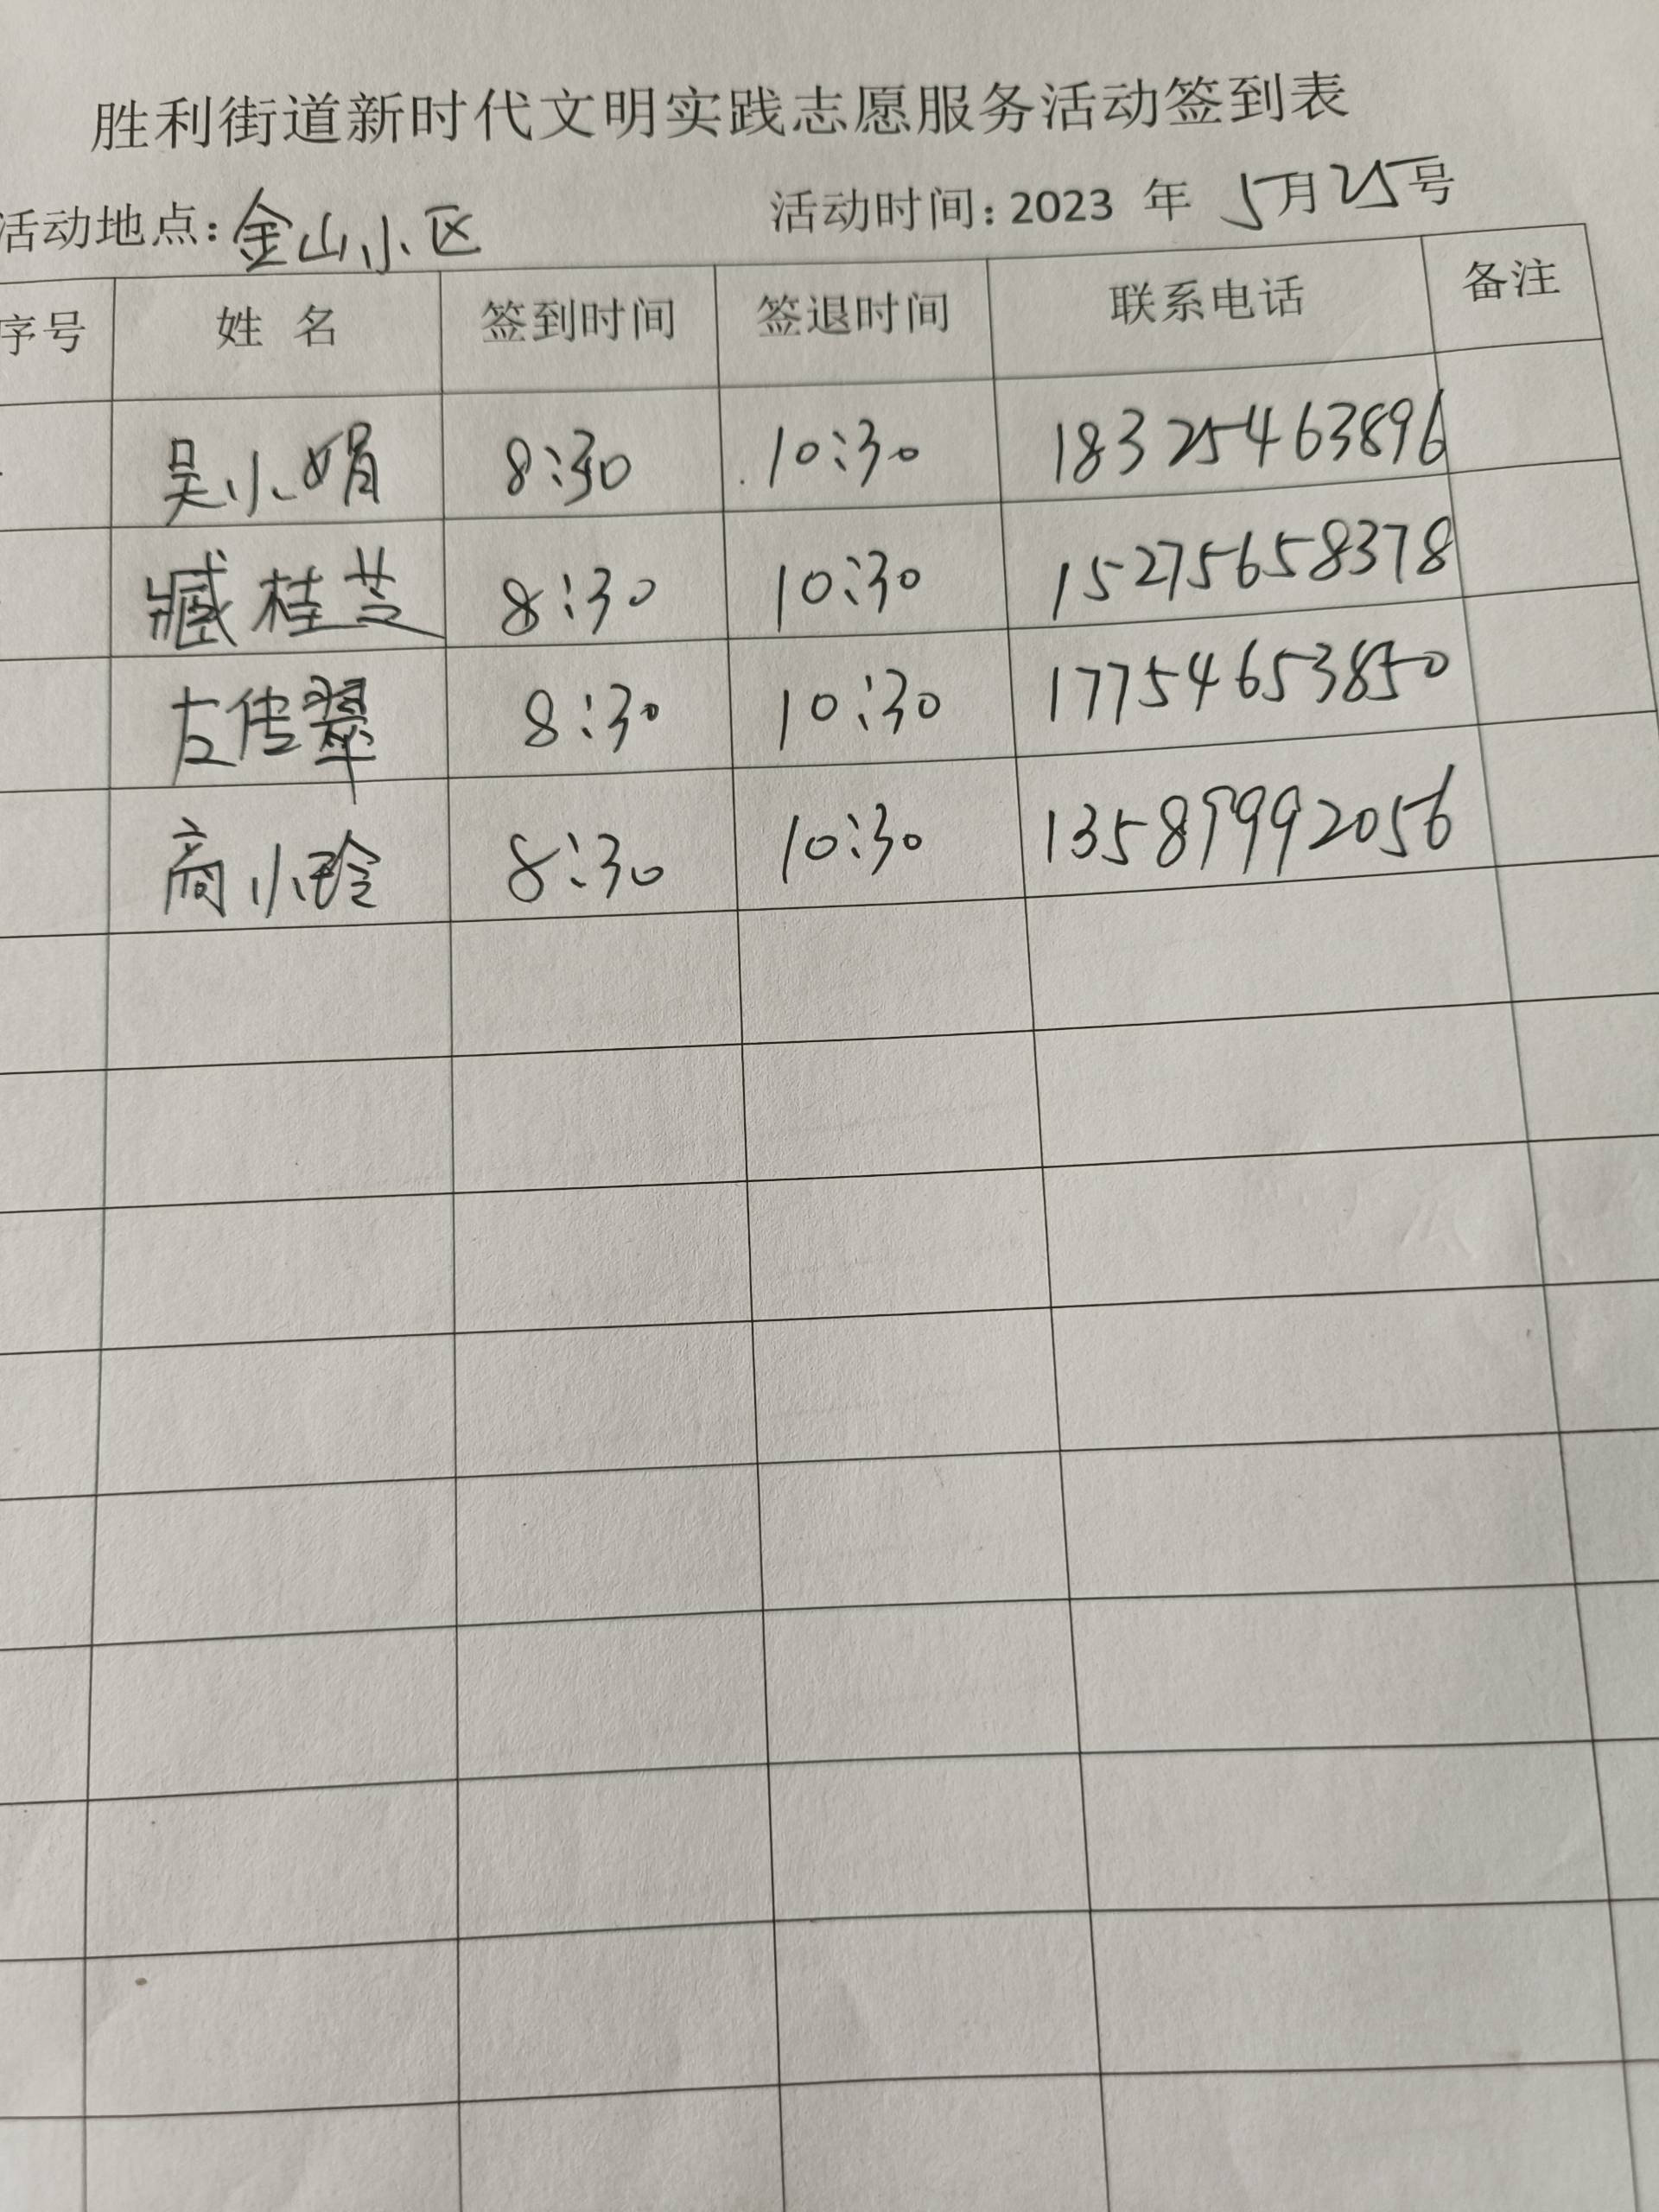 胜利街道新时代文明实践志愿服务活动签到表
活动地点:金山小区 活动时间:2023 年 5月25号
序号 姓 名 签到时间 签退时间 联系电话 备注
吴小娟 8:30 10:30 18325463896
臧桂芝 8:30 10:30 15275658378
左传翠 8:30 10:30 17754653850
商小玲 8:30 10:30 13589992056